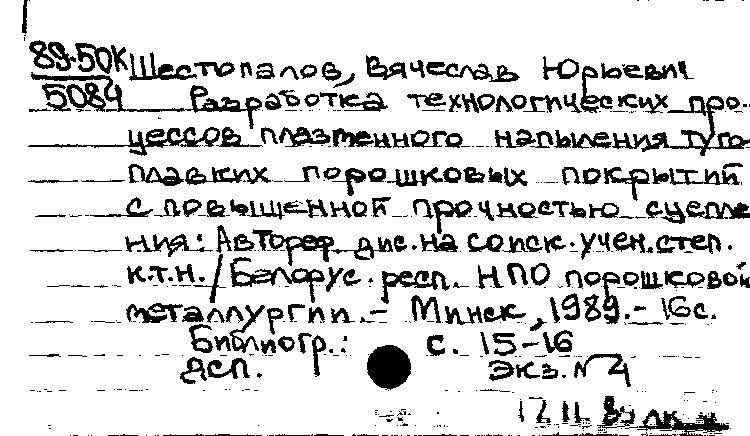 89-50К Шестопалов, Вячеслав Юрьевич
5084 Разработка технологических про-
цессов плазменного напыления туго-
плавких порошковых покрытий
с повышенной прочностью сцепле
ния: Автореф. дис. на соиск. учен. степ.
к.т.н. / Белорус. респ. НПО порошковой
металлургии. - Минск, 1989. - 16 с.
Библиогр.: с. 15-16
ДСП. Экз. N 4
12 11 89